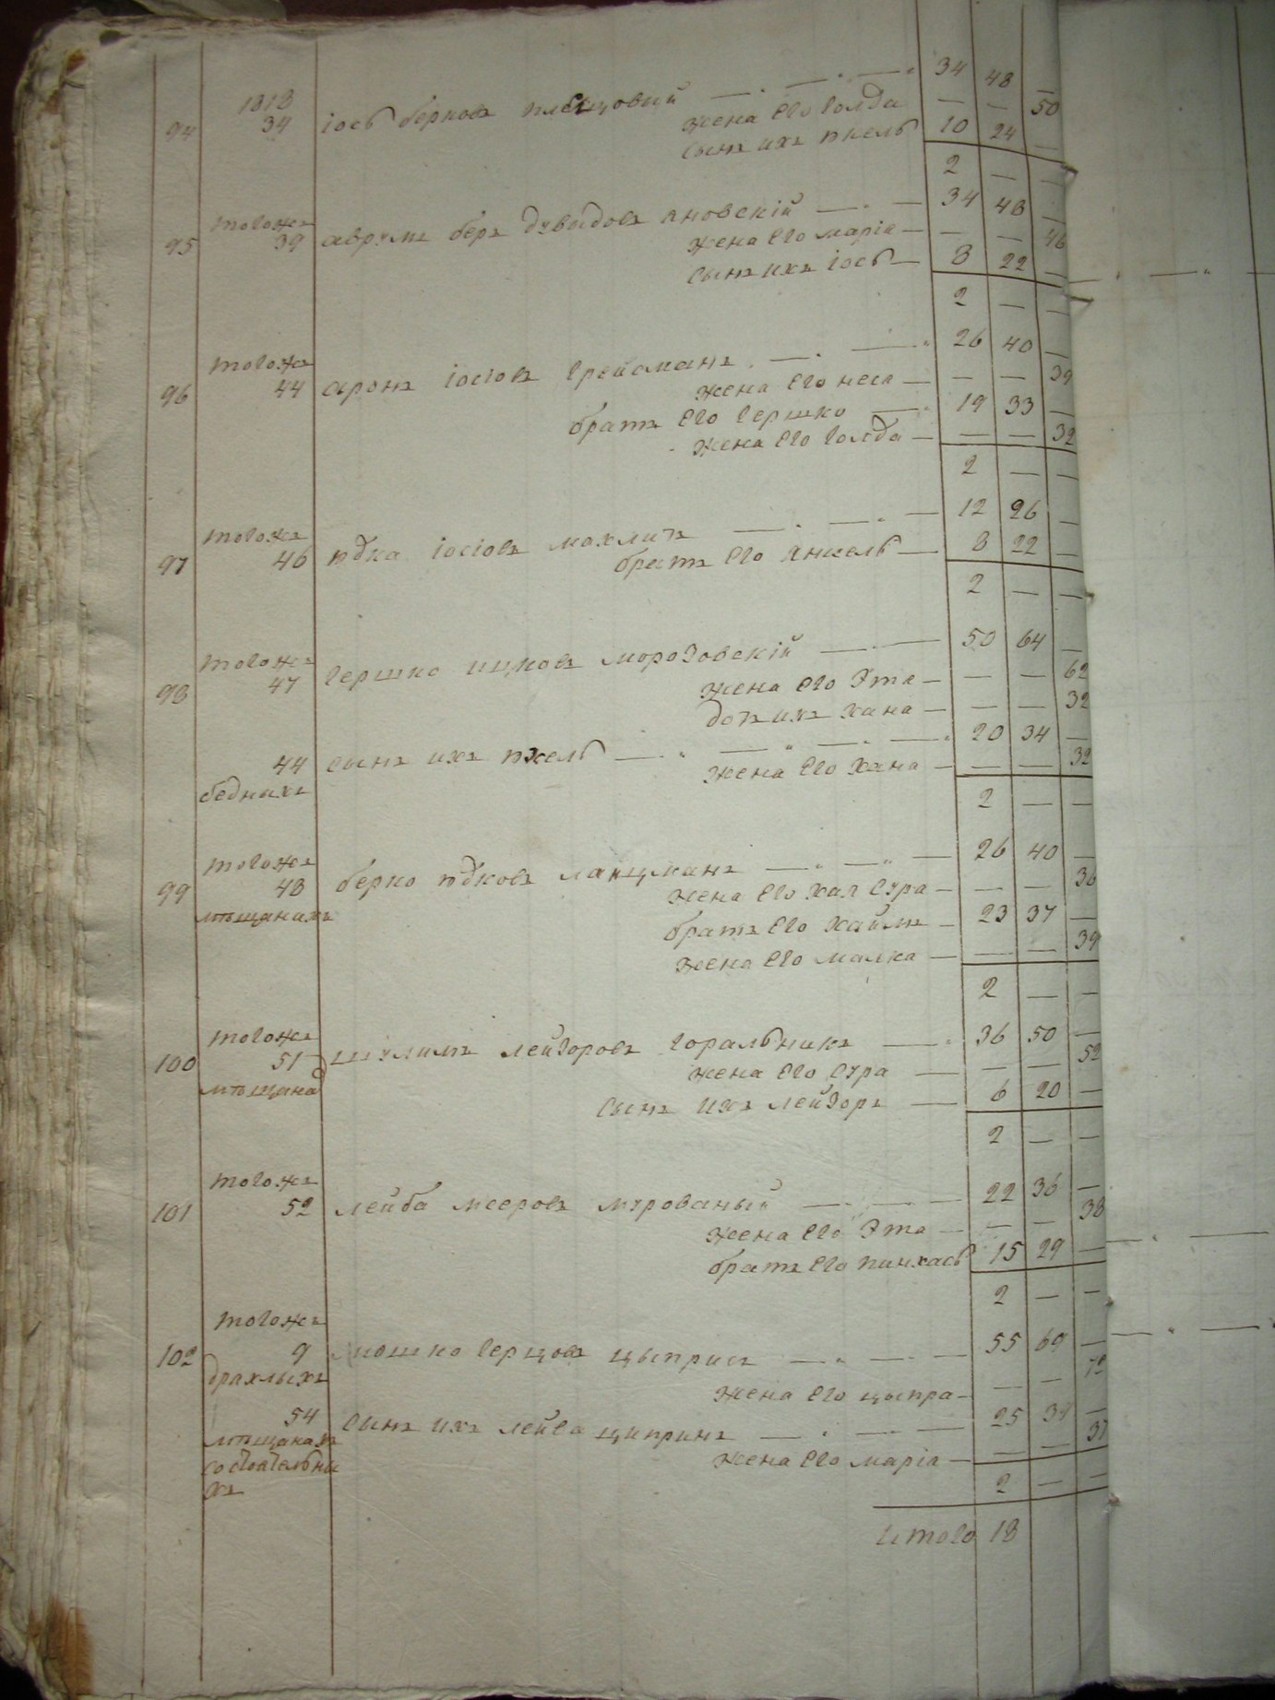 1818 34 48 —
94 34 іось берковъ плесцовий — жена его голда — — 50
сынъ ихъ ицель 10 24 —
2 — —
тогожъ
95 39 аврумъ беръ дувидовъ яновскій — 34 48 —
жена его маріа — — — 46
сынъ ихъ іось — 8 22 —
2 — —
тогожъ
96 44 аронъ іосіовъ Грейсманъ — 26 40 —
жена его неса — — — 39
братъ его гершко — 19 33 —
жена его голда — — — 32
2 — —
тогожъ
97 46 юдка іосіовъ — 12 26 —
братъ его янкель — 8 22 —
2 — —
тогожъ
98 47 гершко ицковъ морозовскій — 50 64 —
жена его Эта — — — 62
дочь ихъ хана — — — 32
44 сынъ ихъ — 20 34 —
бедныхъ жена его хана — — — 32
2 — —
тогожъ
99 48 берко юдковъ ланцманъ — 26 40 —
мѣщанахъ жена его хая сура — — — 36
братъ его хаимъ — 23 37 —
жена его малка — — — 39
2 — —
тогожъ
100 51 шулимъ лейзоровъ горальникъ — 36 50 —
мѣщана жена его сура — — — 52
сынъ ихъ лейзоръ — 6 20 —
2 — —
тогожъ
101 52 лейба мееровъ мурованый — 22 36 —
жена его Эта — — — 38
братъ его пинхась 15 29 —
2 — —
тогожъ
102 9 мошко герцовъ цыприсъ — 55 69 —
драхлыхъ жена его цыпра — — — 72
54 сынъ ихъ лейба ципринъ — 25 39 —
мѣщанахъ жена его маріа — — — 37
состоятельны
хъ 2 — —
итого 18